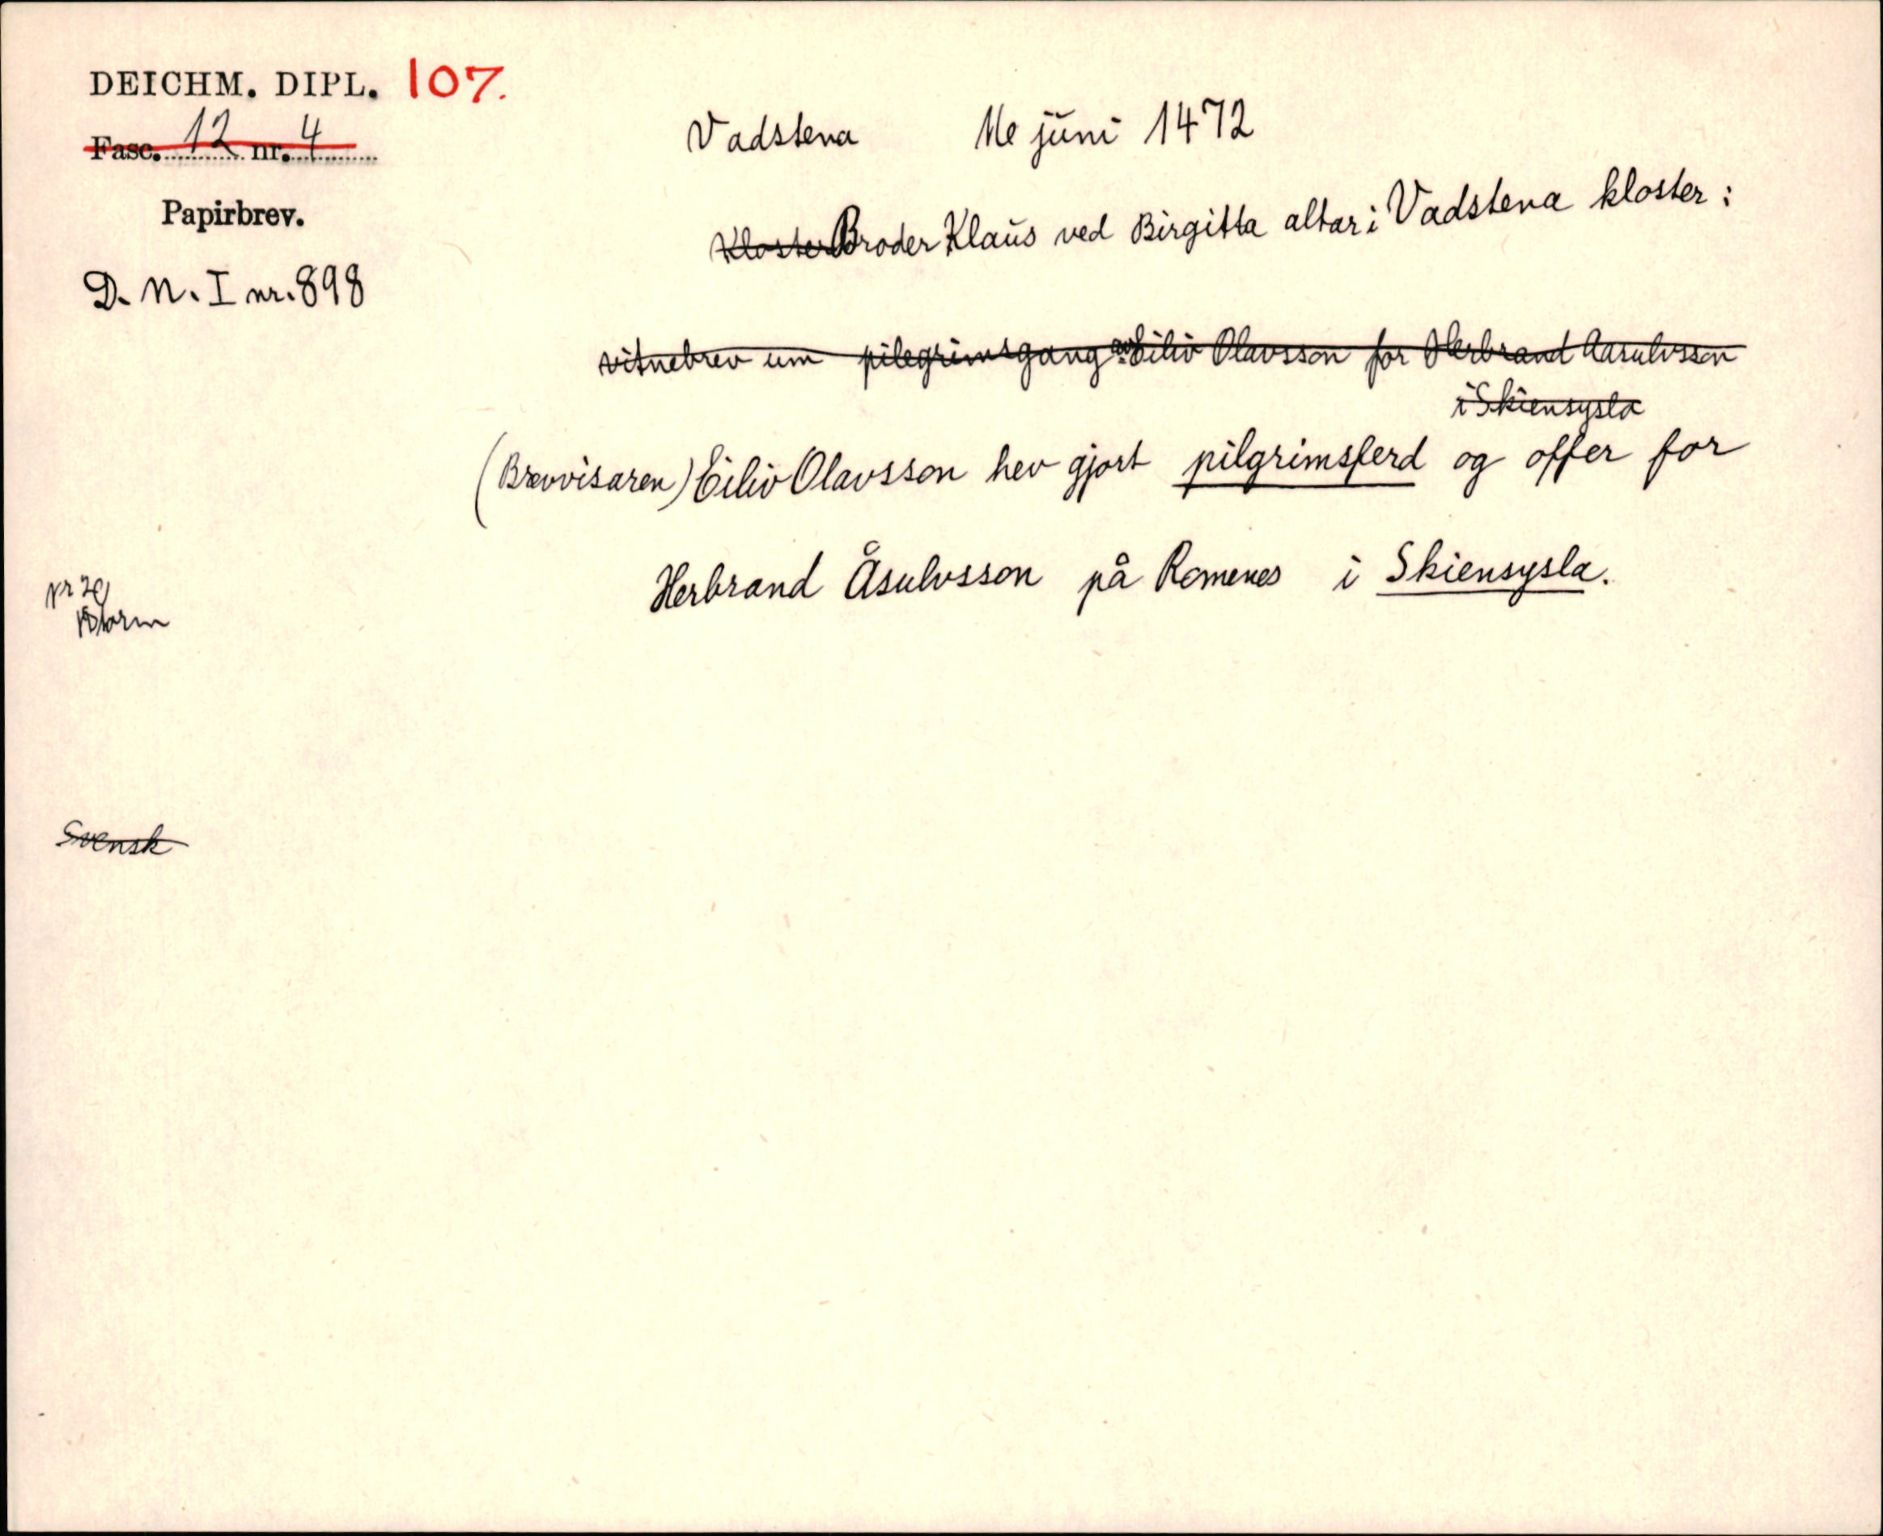 DEICHM. DIPL. 107.
Fasc. 12 nr. 4
Papirbrev.
D. N. I nr. 898
Vadstena 11te juni 1472
Kloster Broder Klaus ved Birgitta altar i Vadstena kloster:
vitnebrev um pilegrimsgang av Eiliv Olavsson for Herbrand Aasulvsson
i Skiensysla
(Brevvisaren) Eiliv Olavsson hev gjort pilgrimsferd og offer for
Herbrand Åsulvsson på Romenes i Skiensysla.
Svensk